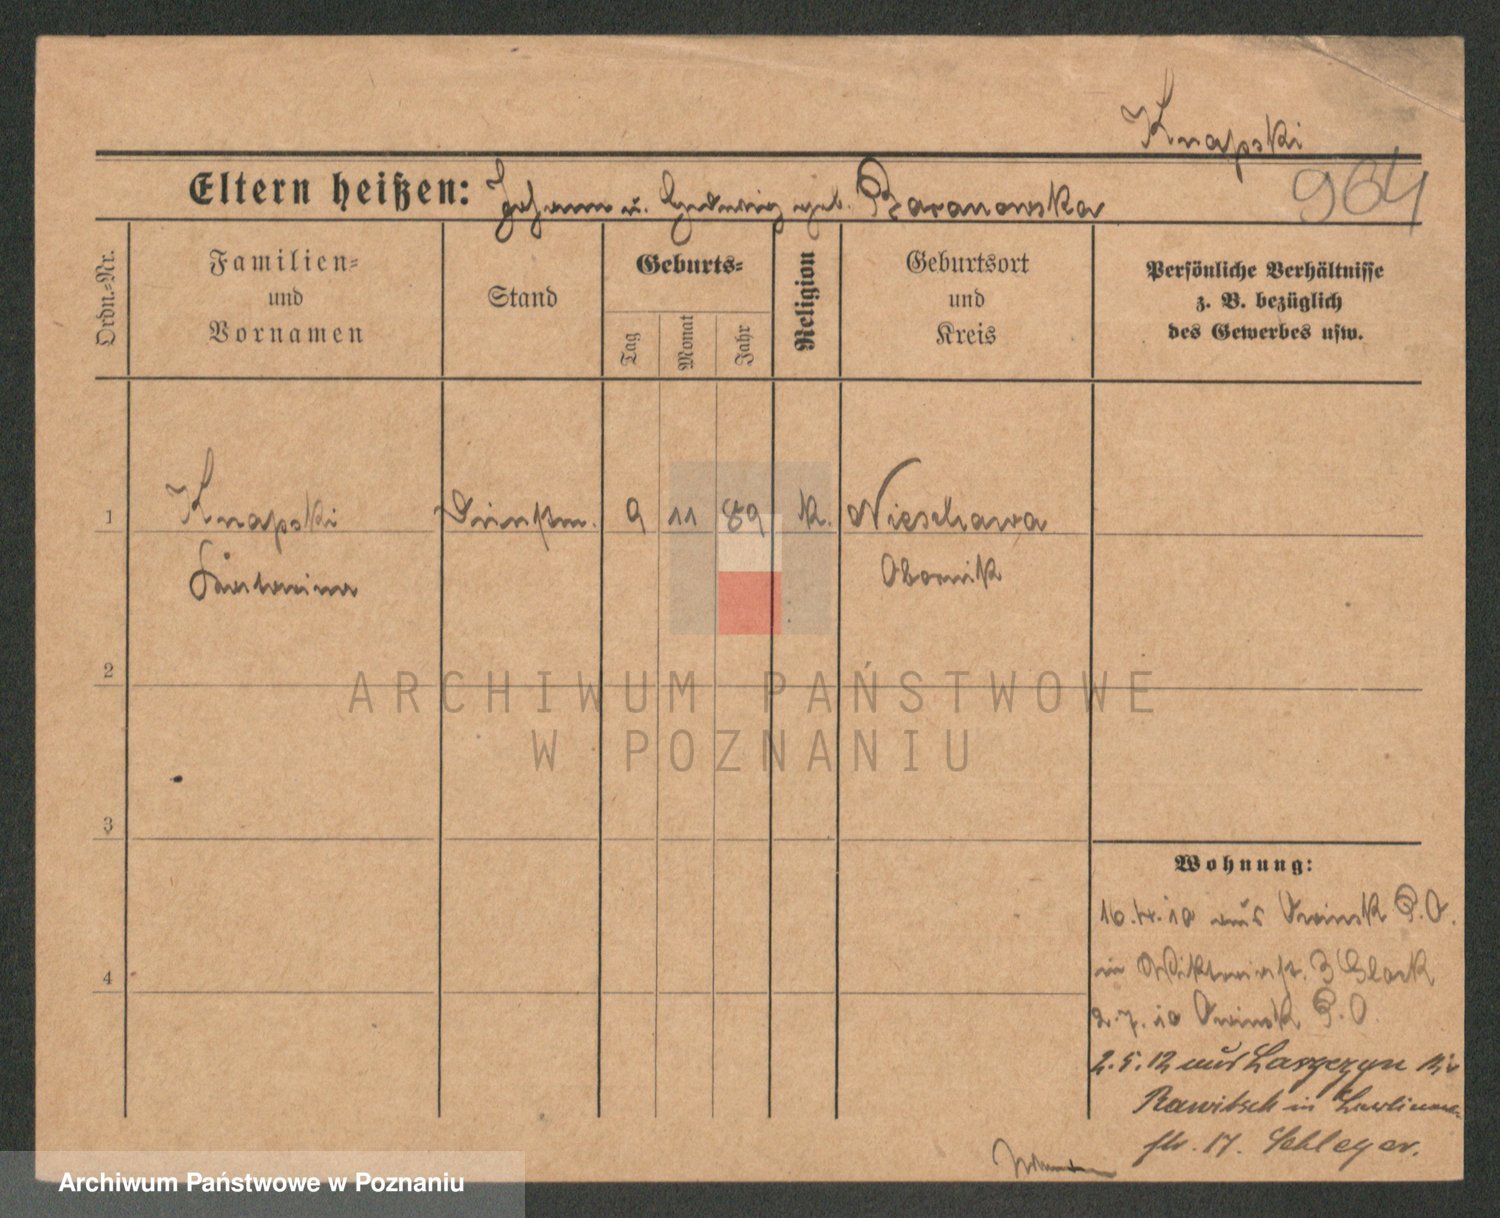 Knapski
964
Eltern heißen: Johann u. Hedwig geb. Baranowska
Ordn.-Nr.
Familien-
und
Vornamen
Stand
Geburts-
Tag
Monat
Jahr
Religion
Geburtsort
und
Kreis
Persönliche Verhältnisse
z. B. bezüglich
des Gewerbes usw.
1
Knapski 9 11 89 k. Nieschawa
Obornik
2
3
4
ARCHIWUM PAŃSTWOWE
W POZNANIU
Wohnung:
aus Owinsk P. O.
in Viktoriastr. 3
2.7.10 Owinsk P. O.
2.5.12 aus
Rawitsch in
str. 17. Schleyer.
Archiwum Państwowe w Poznaniu